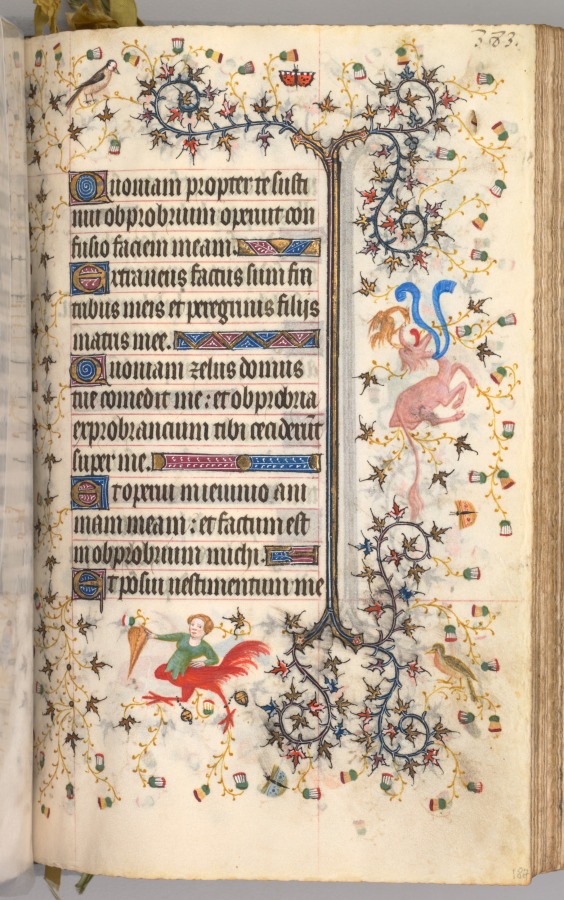 383.
Quoniam propter te susti
nui obprobrium operuit con
fusio faciem meam.
Extraneus factus sum fra
tribus meis et peregrinus filijs
matris mee.
Quoniam zelus domus
tue comedit me : et obprobria
exprobrancium tibi cecideru̅t
super me.
Et operui in ieiunio ani
mam meam : et factum est
in obprobrium michi.
Et posui uestimentum me
187